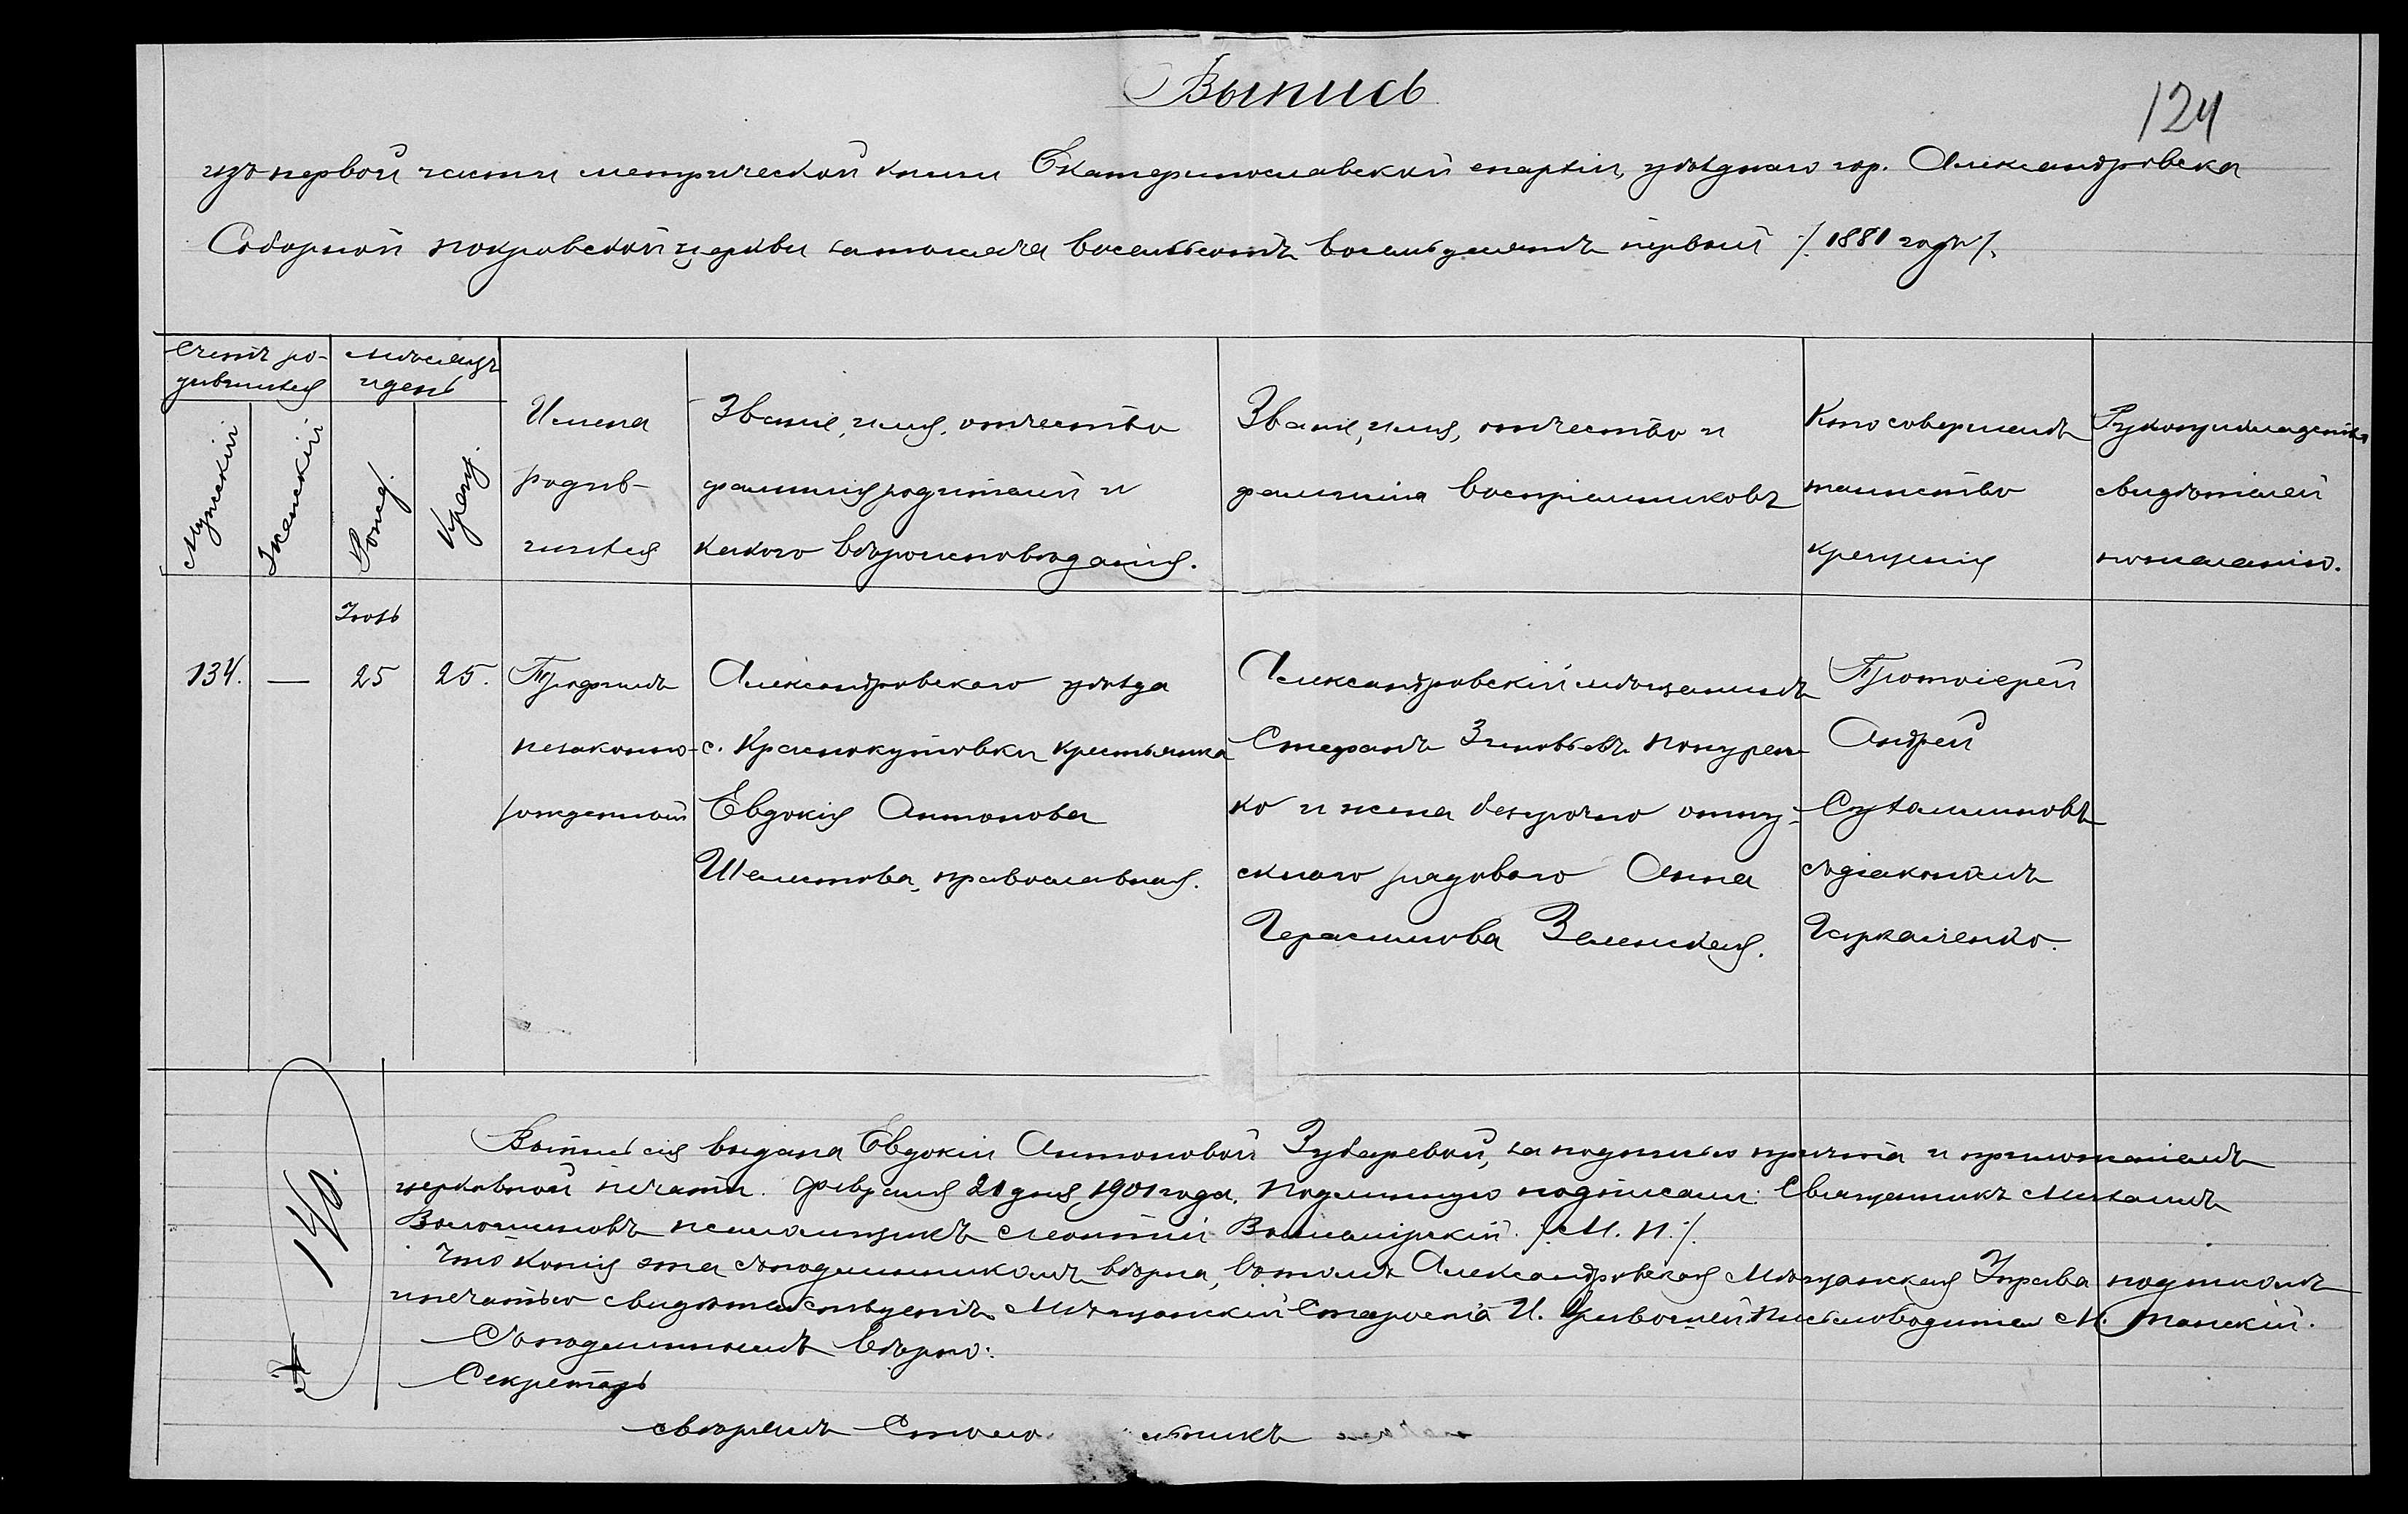 Выпись
124
изъ первой части метрической книги Екатеринославской епархіи, уѣзднаго гор. Александровска
Соборной Покровской церкви за тысяча восемьсотъ восемьдесятъ первый /: 1881 годъ /:
Счетъ ро-
дившихся
Мужескій
Женскій
Мѣсяцъ
и день
Рожд.
Крещ.
Имена
родив-
шихся
Званіе, имя, отчество
фамилія родителей и
какого вѣроисповѣданія.
Званіе, имя, отчество и
фамилія воспріемниковъ
Кто совершалъ
таинство
крещенія
Рукоприкладство
свидѣтелей
по желанію.
134.
—
Іюль
25
25.
Трофимъ
незаконно-
рожденный
Александровскаго уѣзда
с. Краснокутовки крестьянка
Евдокія Антонова
Шелистова, православная.
Александровскій мѣщанинъ
Стефанъ Зиновьевъ
ко и жена безсрочно отпу-
скного рядового Анна
Герасимова Зеленская.
Протоіерей
Андрей
Сухомлиновъ
съ діакономъ
Выпись сія выдана Евдокіи Антоновой Зубаревой, за подписью причта и приложеніемъ
церковной печати. Февраля 21 дня 1901 года. Подлинную подписали: Священникъ Михаилъ
Волошиновъ псаломщикъ Леонтій /: М. П. /:
Что копія эта съ подлинникомъ вѣрна, въ томъ Александровская Мѣщанская Управа подписомъ
и печатью свидѣтельствуетъ. Мѣщанскій Староста И. Письмоводитель М.
Съ подлиннымъ вѣрно:
Секретарь
свѣрялъ
140.